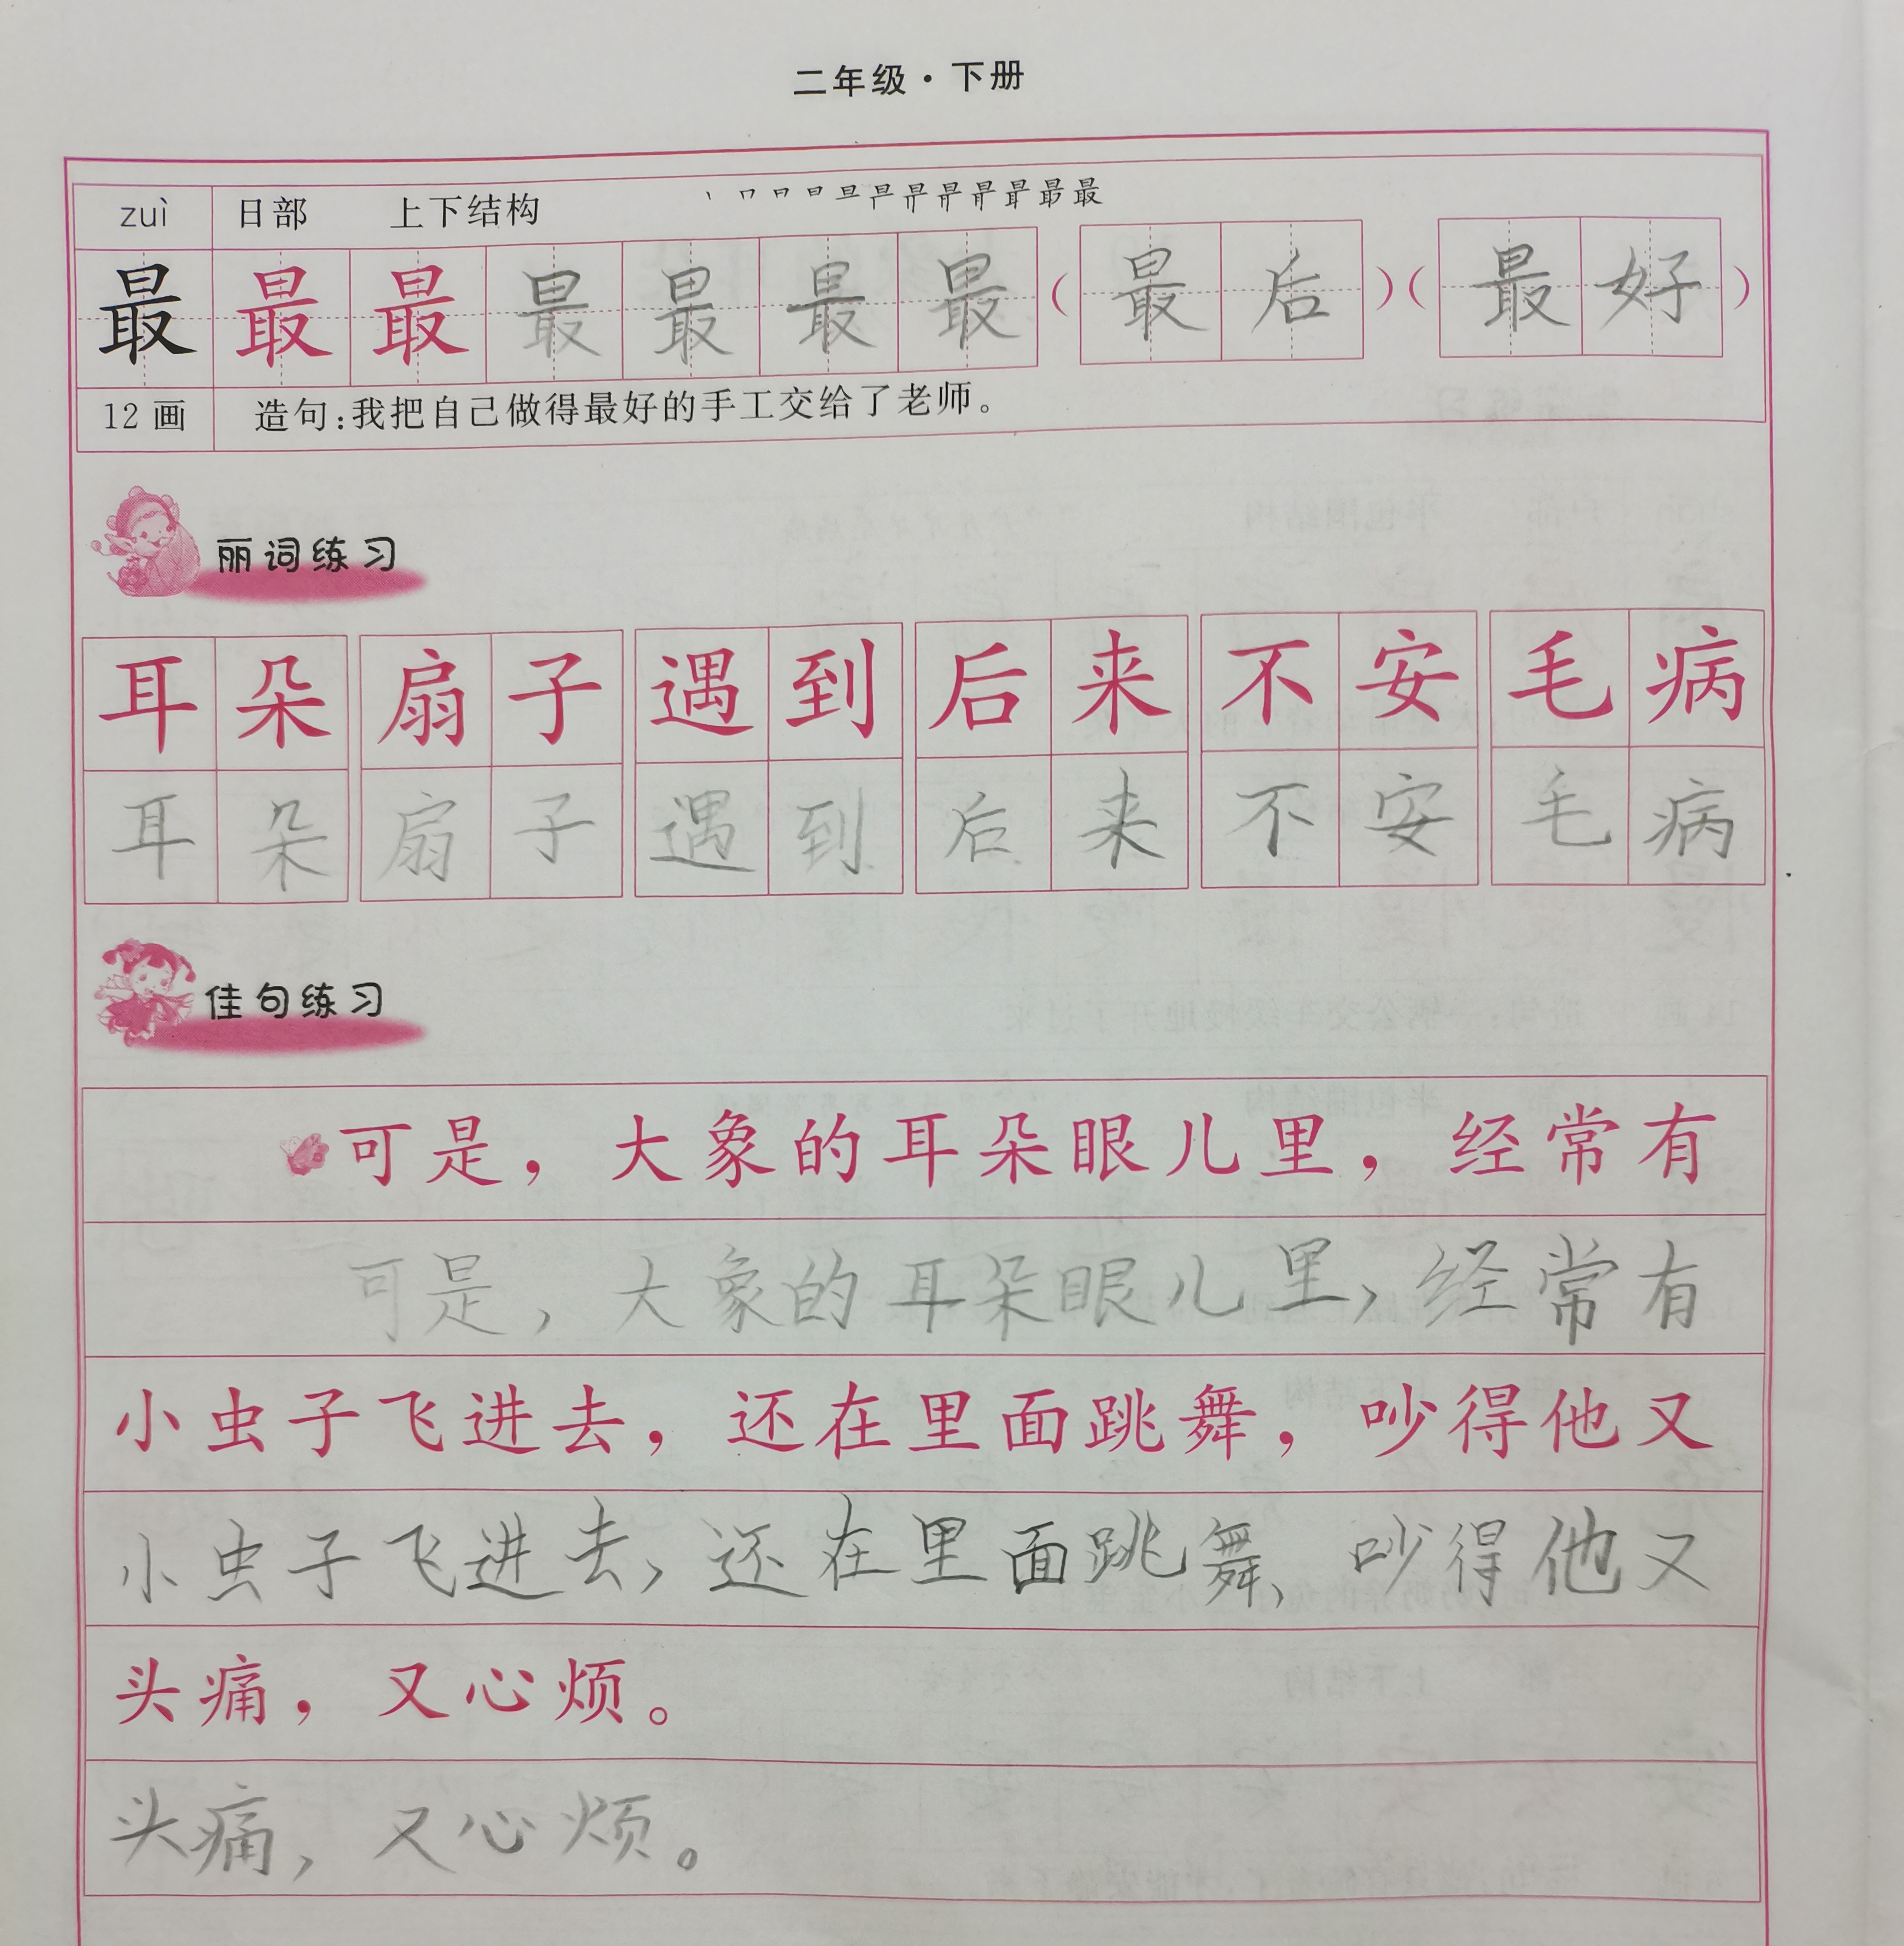 二年级·下册
zuì 日部 上下结构
最 最 最 最 最 最 最 (最后)(最好)
12画 造句:我把自己做得最好的手工交给了老师。
丽词练习
耳朵 扇子 遇到 后来 不安 毛病
耳朵 扇子 遇到 后来 不安 毛病
佳句练习
可是，大象的耳朵眼儿里，经常有
可是，大象的耳朵眼儿里，经常有
小虫子飞进去，还在里面跳舞，吵得他又
小虫子飞进去，还在里面跳舞，吵得他又
头痛，又心烦。
头痛，又心烦。